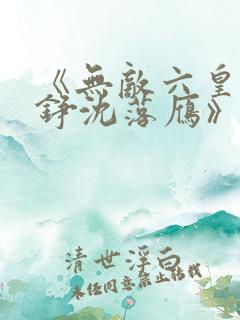 《無敵六皇
錚沈落雁》
清世浮白
未经同意禁止转载